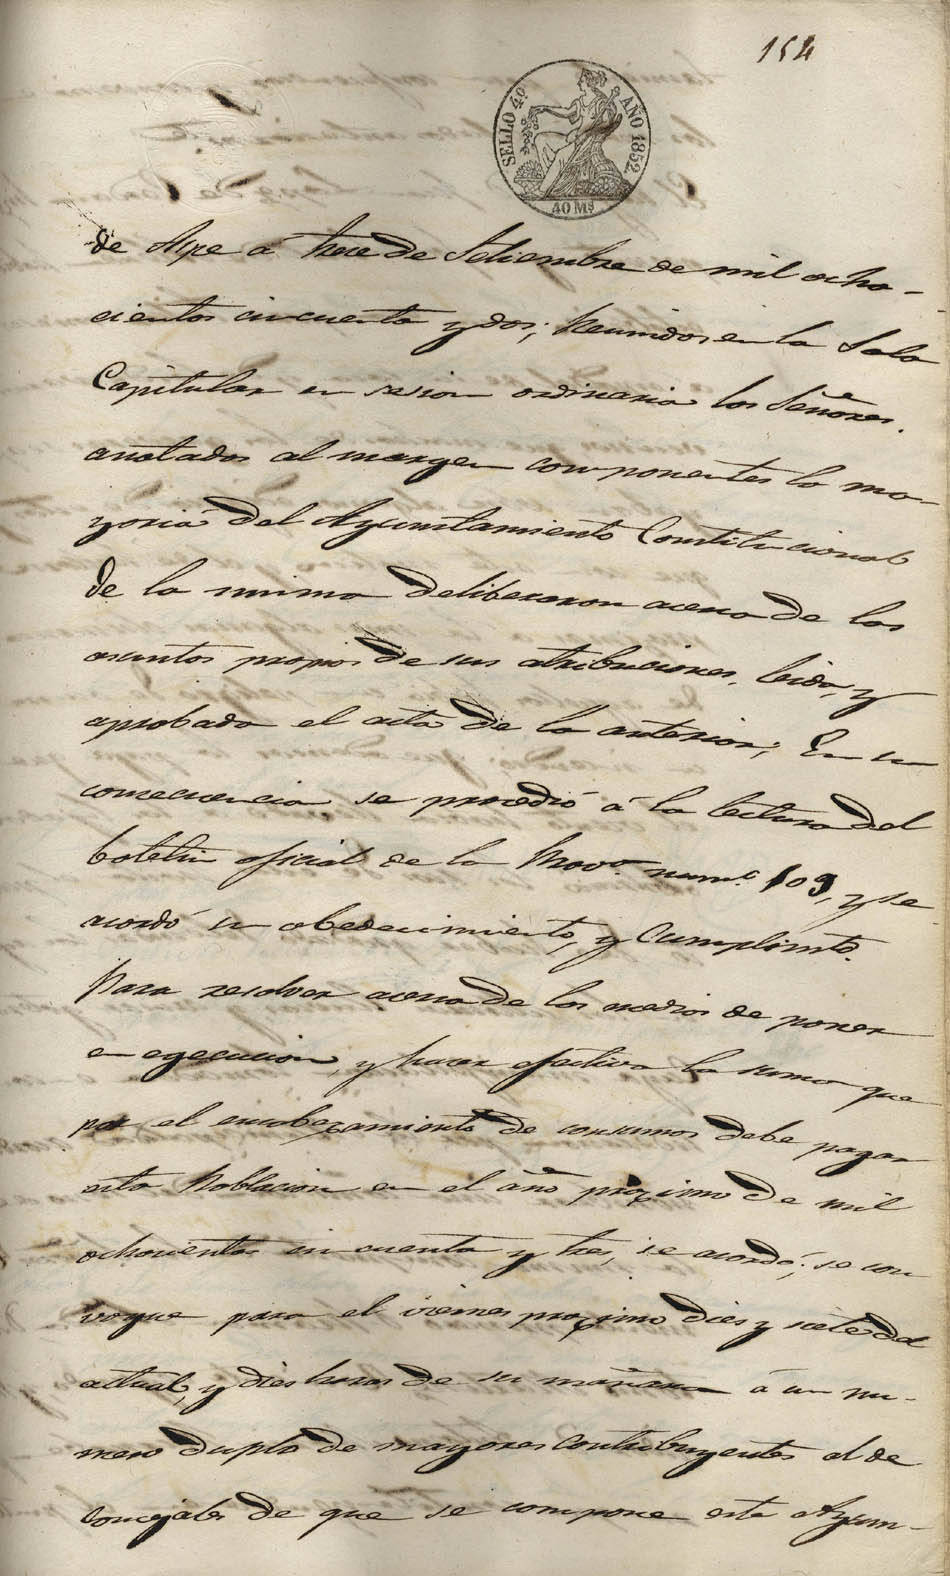 154
SELLO 4º AÑO 1852
40 Ms
de Aspe á trece de Setiembre de mil ocho-
cientos cincuenta y dos; Reunidos en la Sala
Capitular en sesion ordinaria los Señores.
anotados al margen componentes la ma-
yoria del Ayuntamiento Constitucional
de la misma deliberaron acerca de los
asuntos propios de sus atribuciones, leida, y
aprobada el acta de la anterior; En su
consecuencia se procedió á la lectura del
boletin oficial de la Provª. numº. 109, y se
acordó su obedecimiento, y Cumplimto.
Para resolver acerca de los medios de poner
en egecucion, y hacer efectiva la suma que
por el encabezamiento de consumos debe pagar
esta Poblacion en el año proximo de mil
ochocientos cincuenta y tres, se acordó; se con
voque para el viernes proximo dies y siete del
actual, y dies horas de su mañana á un nu-
mero duplo de mayores contribuyentes al de
Concejales de que se compone este Ayun-